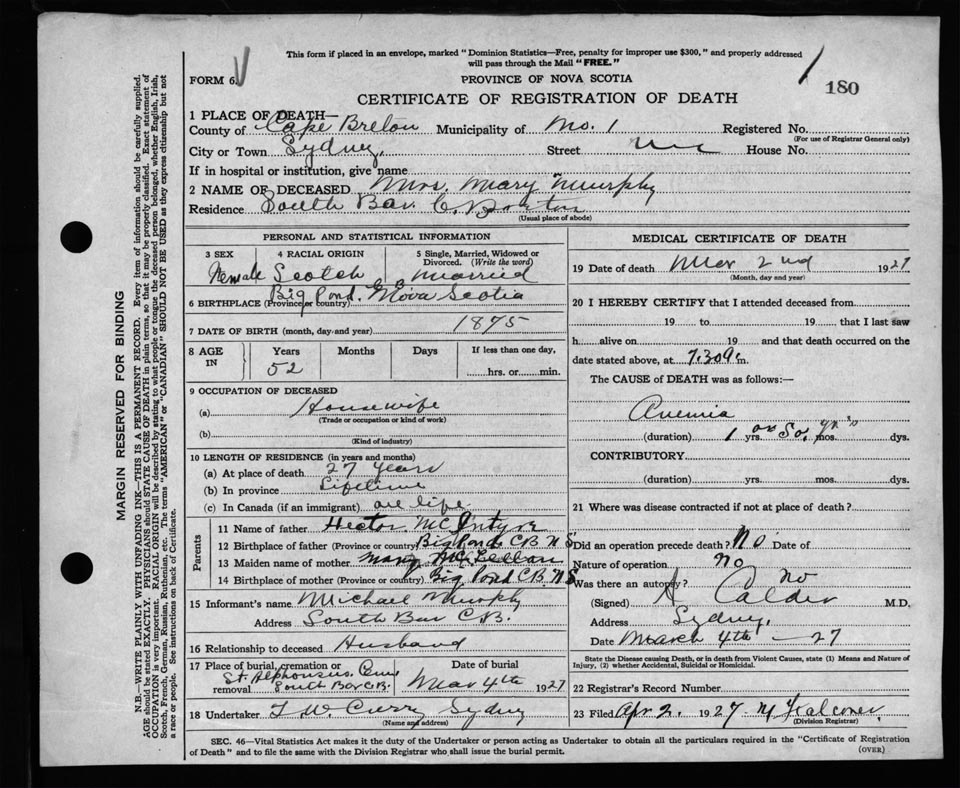 This form if placed in an envelope, marked "Dominion Statistics—Free, penalty for improper use $300," and properly addressed
will pass through the Mail "FREE."
FORM 6.
PROVINCE OF NOVA SCOTIA
180
CERTIFICATE OF REGISTRATION OF DEATH
1 PLACE OF DEATH—
County of Cape Breton Municipality of No. 1 Registered No.
(For use of Registrar General only)
City or Town Sydney, Street House No.
If in hospital or institution, give name
2 NAME OF DECEASED Mrs. Mary Murphy
Residence South Bar, C.
(Usual place of abode)
PERSONAL AND STATISTICAL INFORMATION
3 SEX 4 RACIAL ORIGIN 5 Single, Married, Widowed or
Divorced. (Write the word)
Female Scotch Married
Big Pond. C B Nova Scotia
6 BIRTHPLACE (Province or country)
7 DATE OF BIRTH (month, day and year) 1875
8 AGE IN Years Months Days If less than one day,
52 hrs. or min.
9 OCCUPATION OF DECEASED
(a) Housewife
(Trade or occupation or kind of work)
(b)
(Kind of industry)
10 LENGTH OF RESIDENCE (in years and months)
(a) At place of death 27 years
(b) In province Lifetime
(c) In Canada (if an immigrant) all life
Parents
11 Name of father Hector McIntyre
12 Birthplace of father (Province or country) Big Pond C B N S
13 Maiden name of mother Mary McLellan
14 Birthplace of mother (Province or country) Big Pond C B N S
15 Informant's name Michael Murphy
Address South Bar C.B.
16 Relationship to deceased Husband
17 Place of burial, cremation or removal St. Alphonsus Cem South Bar C.B. Date of burial Mar 4th 1927
18 Undertaker T W Curry Sydney
(Name and address)
MEDICAL CERTIFICATE OF DEATH
19 Date of death Mar 2nd 1927
(Month, day and year)
20 I HEREBY CERTIFY that I attended deceased from
19 to 19 that I last saw
h alive on 19 and that death occurred on the
date stated above, at 7.30 m.
The CAUSE of DEATH was as follows:—
Anemia
(duration) 1 yrs. or So. mos. dys.
CONTRIBUTORY
(duration) yrs. mos. dys.
21 Where was disease contracted if not at place of death?
Did an operation precede death? No Date of
Nature of operation No
Was there an autopsy? No
(Signed) Calder M.D.
Address Sydney,
Date March 4th — 27
State the Disease causing Death, or in death from Violent Causes, state (1) Means and Nature of
Injury, (2) whether Accidental, Suicidal or Homicidal.
22 Registrar's Record Number
23 Filed Apr 2. 1927 M Falconer
(Division Registrar)
SEC. 46—Vital Statistics Act makes it the duty of the Undertaker or person acting as Undertaker to obtain all the particulars required in the "Certificate of Registration
of Death" and to file the same with the Division Registrar who shall issue the burial permit. (OVER)
MARGIN RESERVED FOR BINDING
N.B.—WRITE PLAINLY WITH UNFADING INK—THIS IS A PERMANENT RECORD. Every item of information should be carefully supplied.
AGE should be stated EXACTLY. PHYSICIANS should STATE CAUSE OF DEATH in plain terms, so that it may be properly classified. Exact statement of
OCCUPATION is very important. RACIAL ORIGIN will be described by stating to what people or tongue the deceased person belonged, whether English, Irish,
Scotch, French, German, Russian, Ruthenian, etc. The terms "AMERICAN" or "CANADIAN" SHOULD NOT BE USED as they express citizenship but not
a race or people. See instructions on back of Certificate.